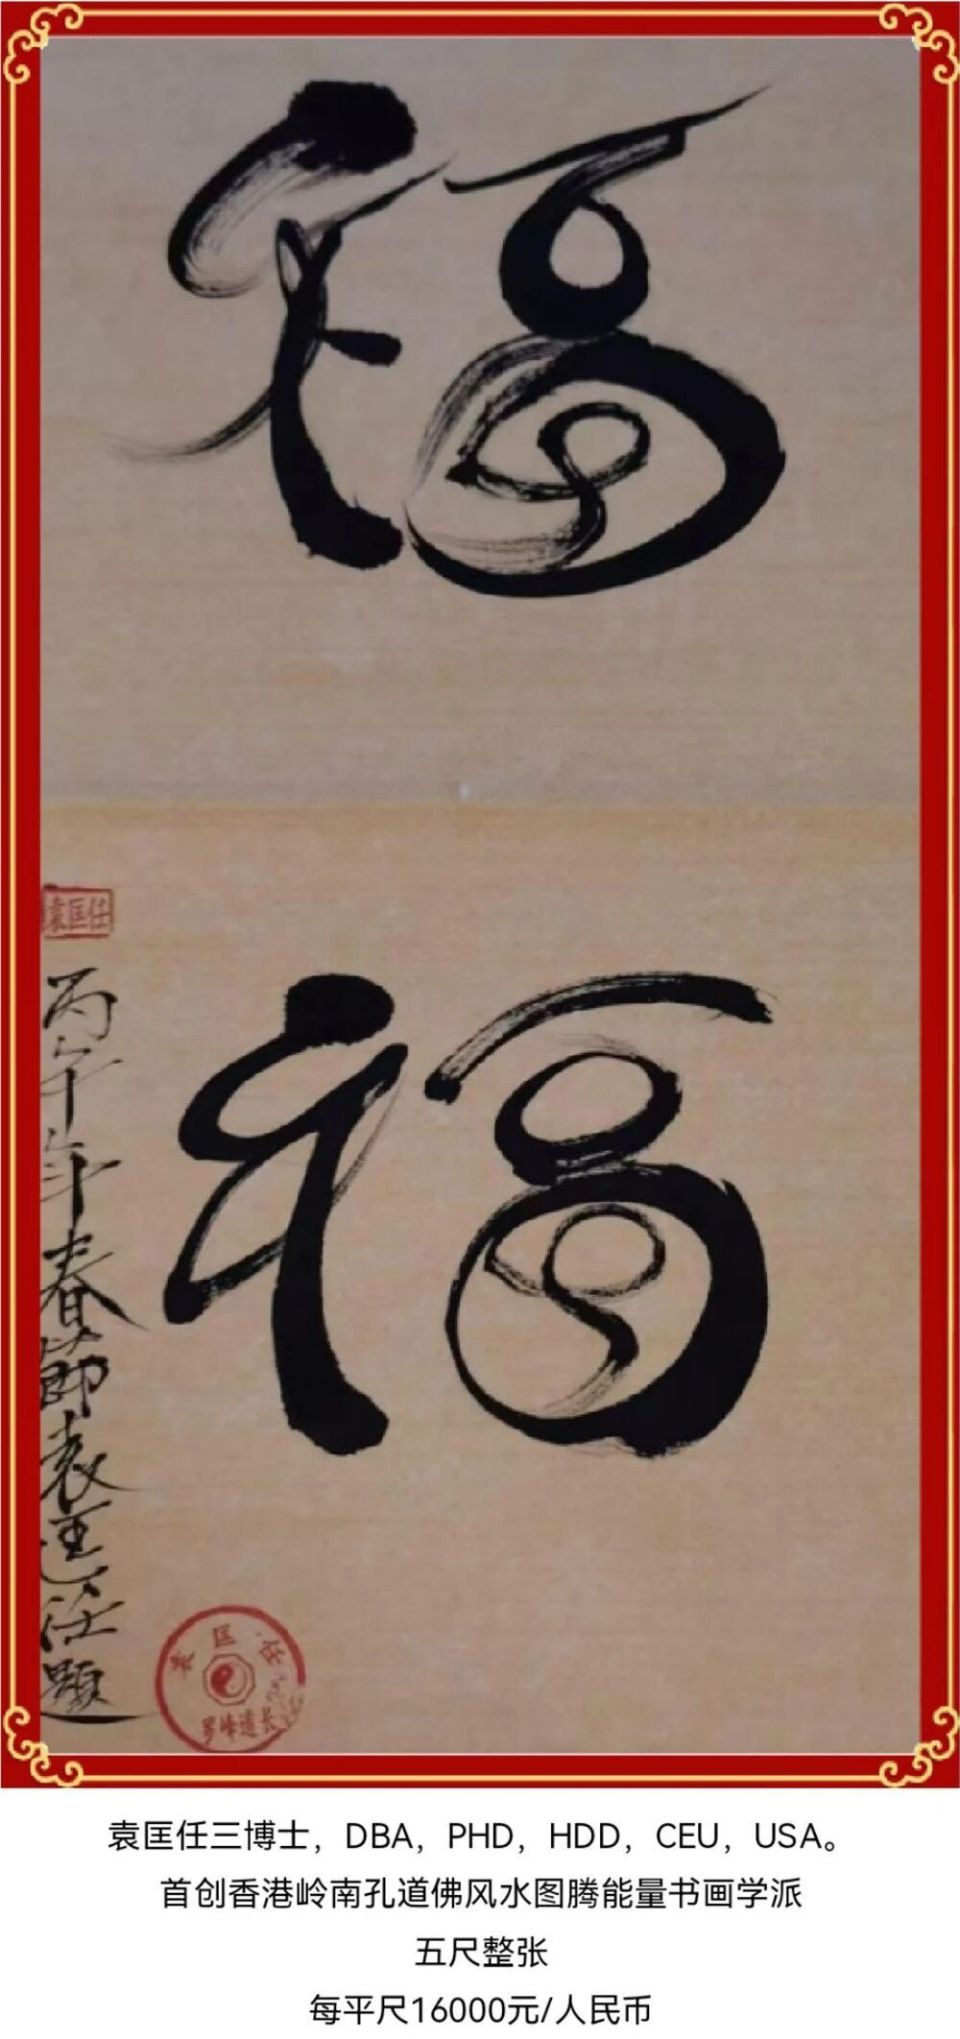 福
福
袁匡任
丙午年春節袁匡任題
袁匡任
罗峰道长
袁匡任三博士，DBA，PHD，HDD，CEU，USA。
首创香港岭南孔道佛风水图腾能量书画学派
五尺整张
每平尺16000元/人民币